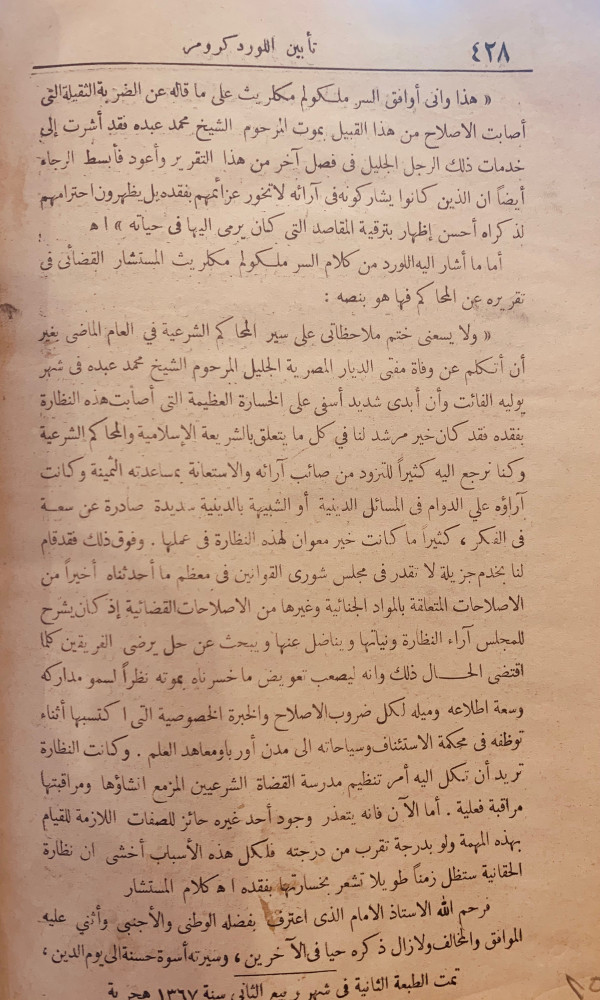 ٤٢٨
تأبين اللورد كرومر
« هذا وانى أوافق السر ملكولم مكلريث على ما قاله عن الضربة الثقيلة التى
أصابت الاصلاح من هذا القبيل بموت المرحوم الشيخ محمد عبده فقد أشرت إلى
خدمات ذلك الرجل الجليل فى فصل آخر من هذا التقرير وأعود فأبسط الرجاء
أيضاً ان الذين كانوا يشاركونه فى آرائه لا تخور عزائمهم بفقده بل يظهرون احترامهم
لذكراه أحسن إظهار بترقية المقاصد التي كان يرمى اليها فى حياته » ا ه
أما ما أشار اليه اللورد من كلام السر ملكولم مكلريث المستشار القضائى في
تقريره عن المحاكم فها هو بنصه :
« ولا يسعنى ختم ملاحظاتى على سير المحاكم الشرعية في العام الماضى بغير
أن أتكلم عن وفاة مفتى الديار المصرية الجليل المرحوم الشيخ محمد عبده فى شهر
يوليه الفائت وأن أبدى شديد أسفى على الخسارة العظيمة التى أصابت هذه النظارة
بفقده فقد كان خير مرشد لنا في كل ما يتعلق بالشريعة الإسلامية والمحاكم الشرعية
وكنا نرجع اليه كثيراً للتزود من صائب آرائه والاستعانة بمساعدته الثمينة وكانت
آراؤه علي الدوام فى المسائل الدينية أو الشبيهة بالدينية سديدة صادرة عن سعة
فى الفكر ، كثيراً ما كانت خير معوان لهذه النظارة فى عملها . وفوق ذلك فقد قام
لنا بخدم جزيلة لا تقدر فى مجلس شورى القوانين فى معظم ما أحدثناه أخيراً من
الاصلاحات المتعلقة بالمواد الجنائية وغيرها من الاصلاحات القضائية إذ كان يشرح
للمجلس آراء النظارة ونياتها ويناضل عنها ويبحث عن حل يرضى الفريقين كلما
اقتضى الحال ذلك وانه ليصعب تعويض ما خسرناه بموته نظراً لسمو مداركه
وسعة اطلاعه وميله لكل ضروب الاصلاح والخبرة الخصوصية التى اكتسبها أثناء
توظفه فى محكمة الاستئناف وسياحاته الى مدن أوربا ومعاهد العلم . وكانت النظارة
تريد أن تكل اليه أمر تنظيم مدرسة القضاة الشرعيين المزمع انشاؤها ومراقبتها
مراقبة فعلية . أما الآن فانه يتعذر وجود أحد غيره حائز للصفات اللازمة للقيام
بهذه المهمة ولو بدرجة تقرب من درجته فلكل هذه الأسباب أخشى ان نظارة
الحقانية ستظل زمناً طويلا تشعر بخسارتها بفقده اه كلام المستشار
فرحم الله الاستاذ الامام الذى اعترف بفضله الوطنى والأجنبي وأثني عليه
الموافق والمخالف ولازال ذكره حيا فى الآخرين ، وسيرته أسوة حسنة الى يوم الدين ،
تمت الطبعة الثانية فى شهر ربيع الثانى سنة ١٣٦٧ هجرية